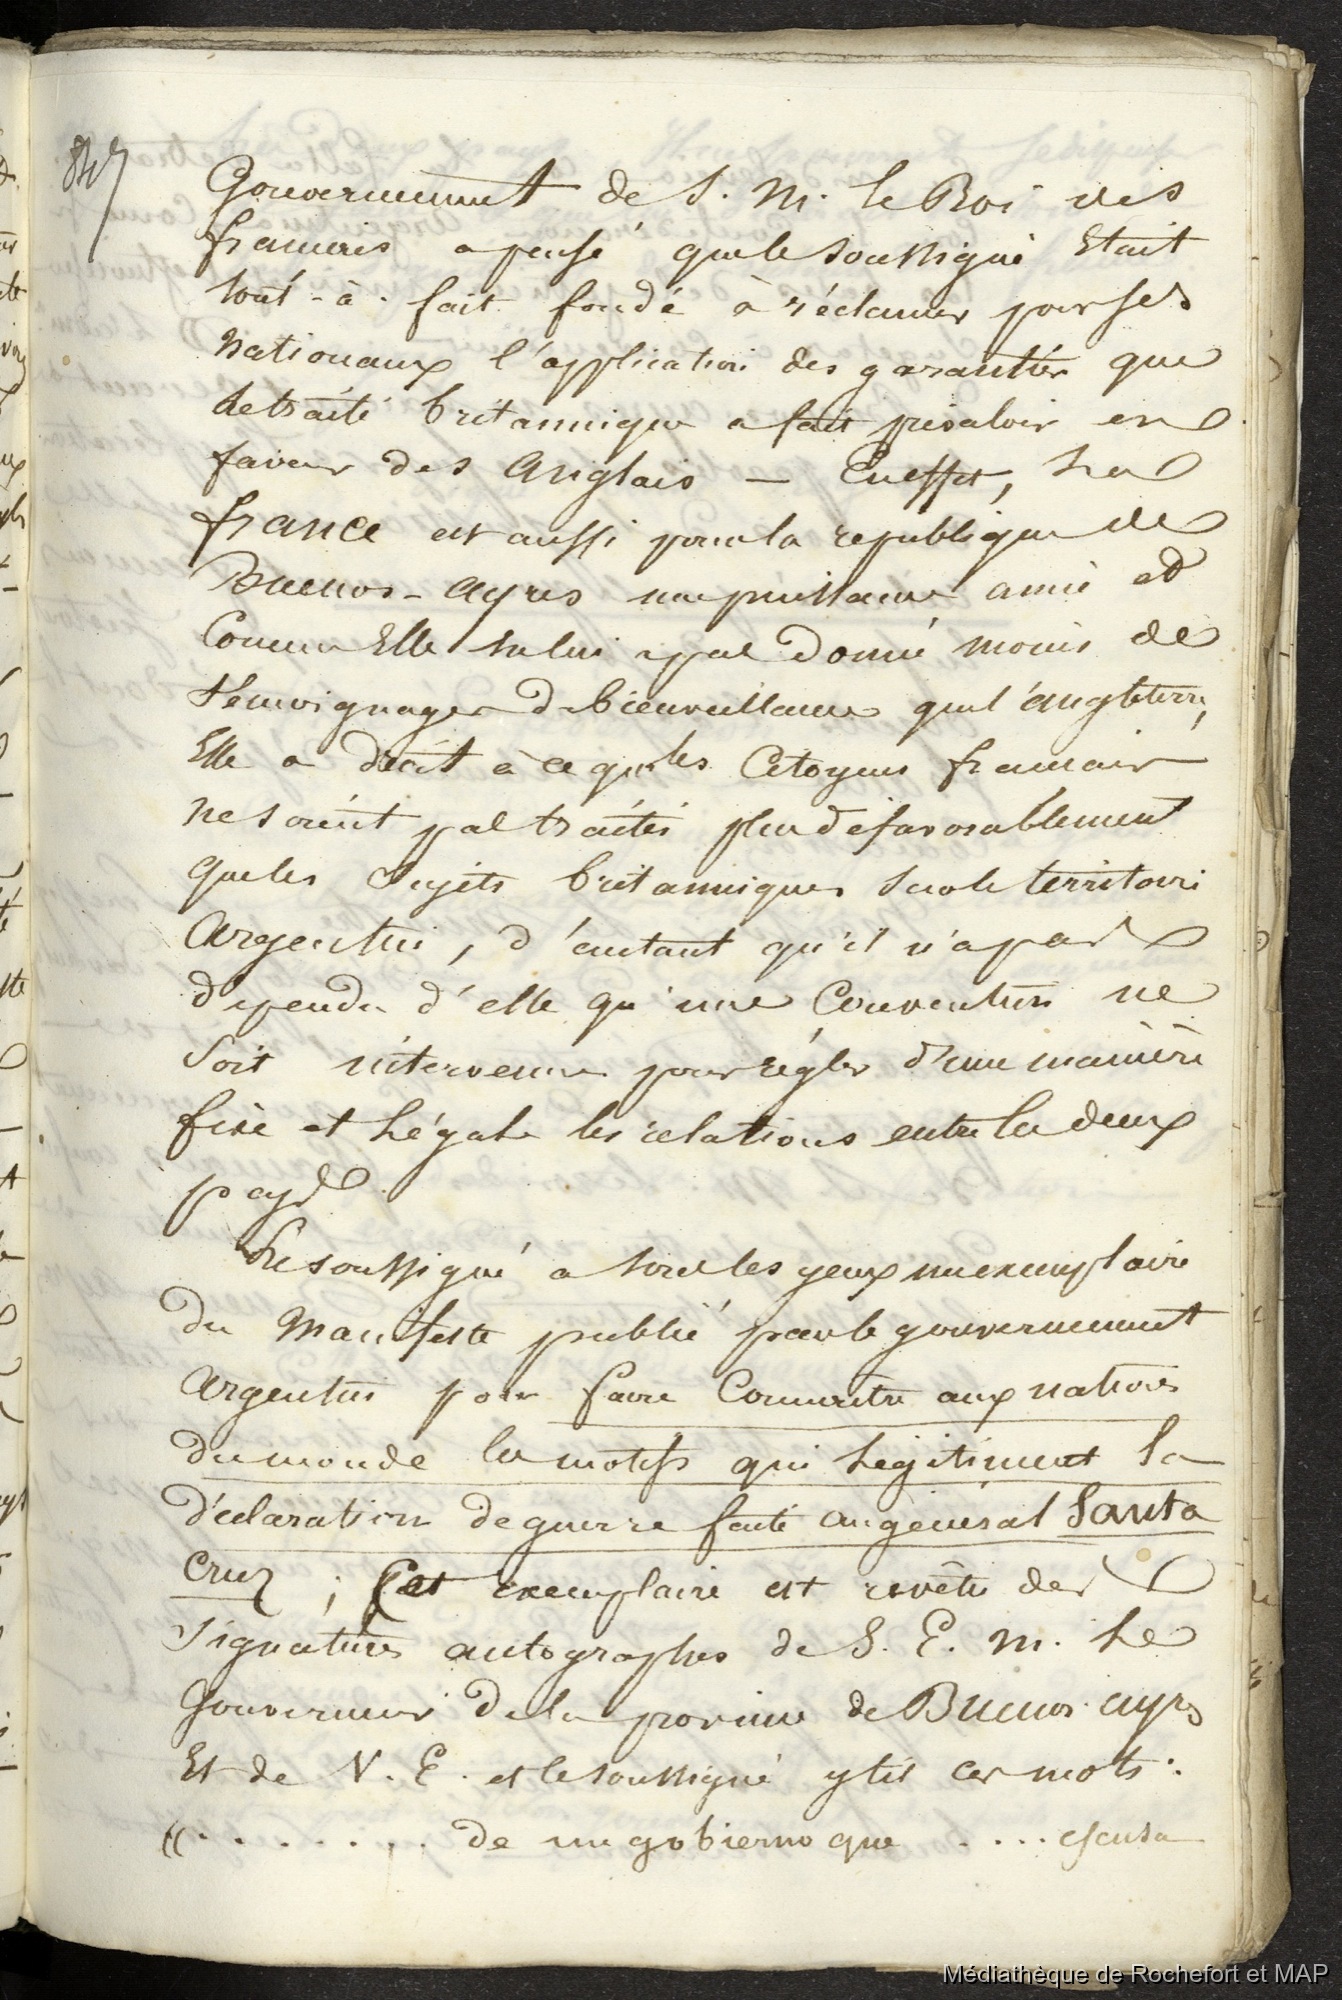 847
Gouvernement de S. M. le Roi des
francais a pensé que le soussigné Etait
tout-à-fait fondé à réclamer pour ses
Nationaux l'application des garanties que
le traité britannique a fait prévaloir en
faveur des Anglais — En effet, La
france est aussi pour la republique de
Buenos-Ayres une puissance amie et
Comme Elle ne lui a pas donné moins de
témoignages de bienveillance que l'angleterre,
Elle a droit à ce que les Citoyens francais
ne soient pas traités plus défavorablement
que les Sujets britanniques sur le territoire
Argentin, d'autant qu'il n'a pas
dépendu d'elle qu'une Convention ne
Soit intervenue pour régler d'une manière
fixe et Légale les relations entre les deux
pays.
Le soussigné a sous les yeux un exemplaire
du Manifeste publié par le gouvernement
Argentin pour faire Connaitre aux nations
du monde les motifs qui Légitiment la
déclaration de guerre faite au général Santa
Cruz ; Cet exemplaire est revêtu des
Signatures autographes de S. E. M. Le
Gouverneur de la province de Buenos-ayres
Et de V. E. et le soussigné y lit ces mots :
« . . . . . . . de un gobierno que . . . . escusa
Médiathèque de Rochefort et MAP